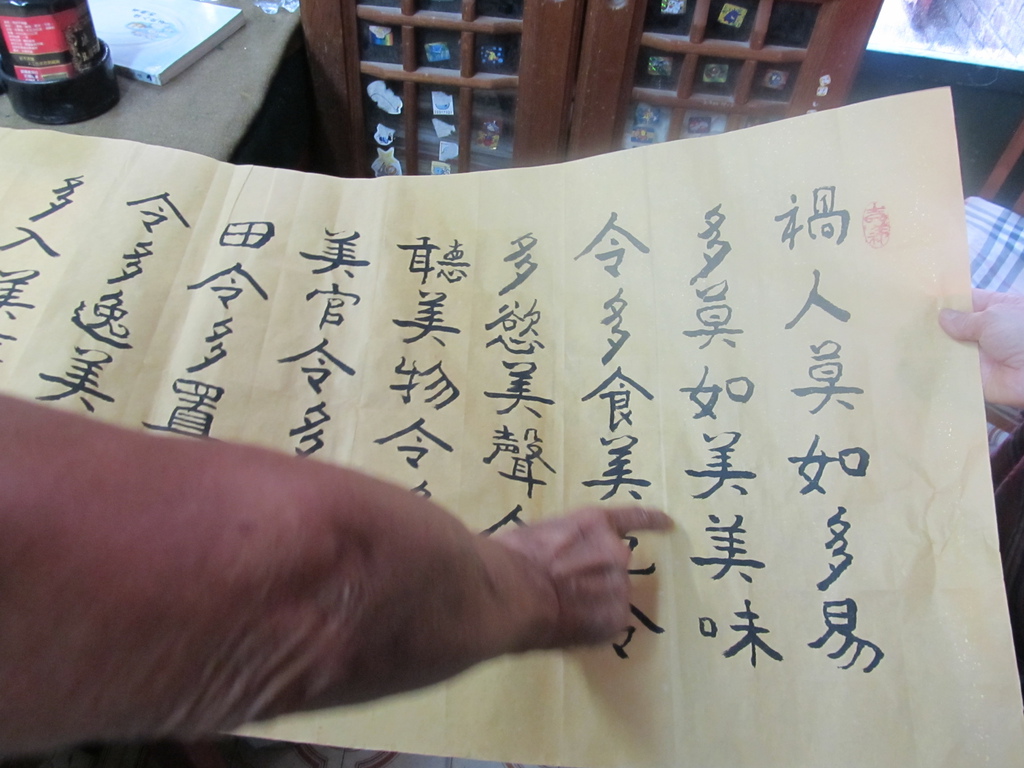 禍人莫如多易
多莫如美美味
令多食美色令
多慾美聲令
聽美物令多
美官令多
田令多置
令多逸美
多入美